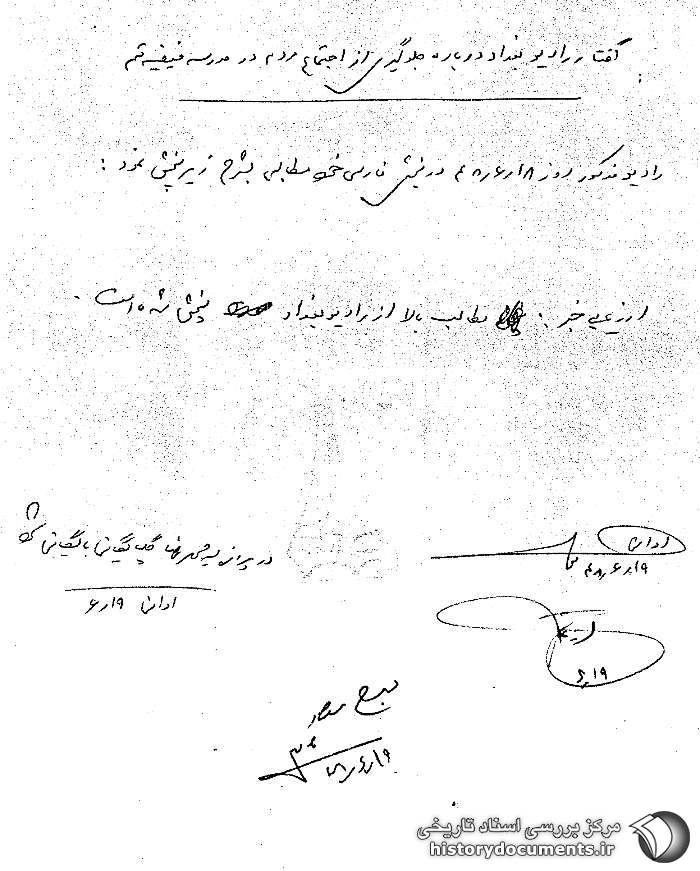 گفتار رادیو بغداد درباره جلوگیری از اجتماع مردم در مدرسه فیضیه قم
رادیو مذکور روز ۴۸/۶/۱۸ در بخش فارسی خود مطالبی بشرح زیر پخش نمود :
ارزیابی خبر : مطالب بالا از رادیو بغداد پخش شده است .
در پرونده گلپایگانی بایگانی
۶/۱۹
۴۸/۶/۱۹
۶/۱۹
۴۸/۶/۱۹
مرکز بررسی اسناد تاریخی
historydocuments.ir